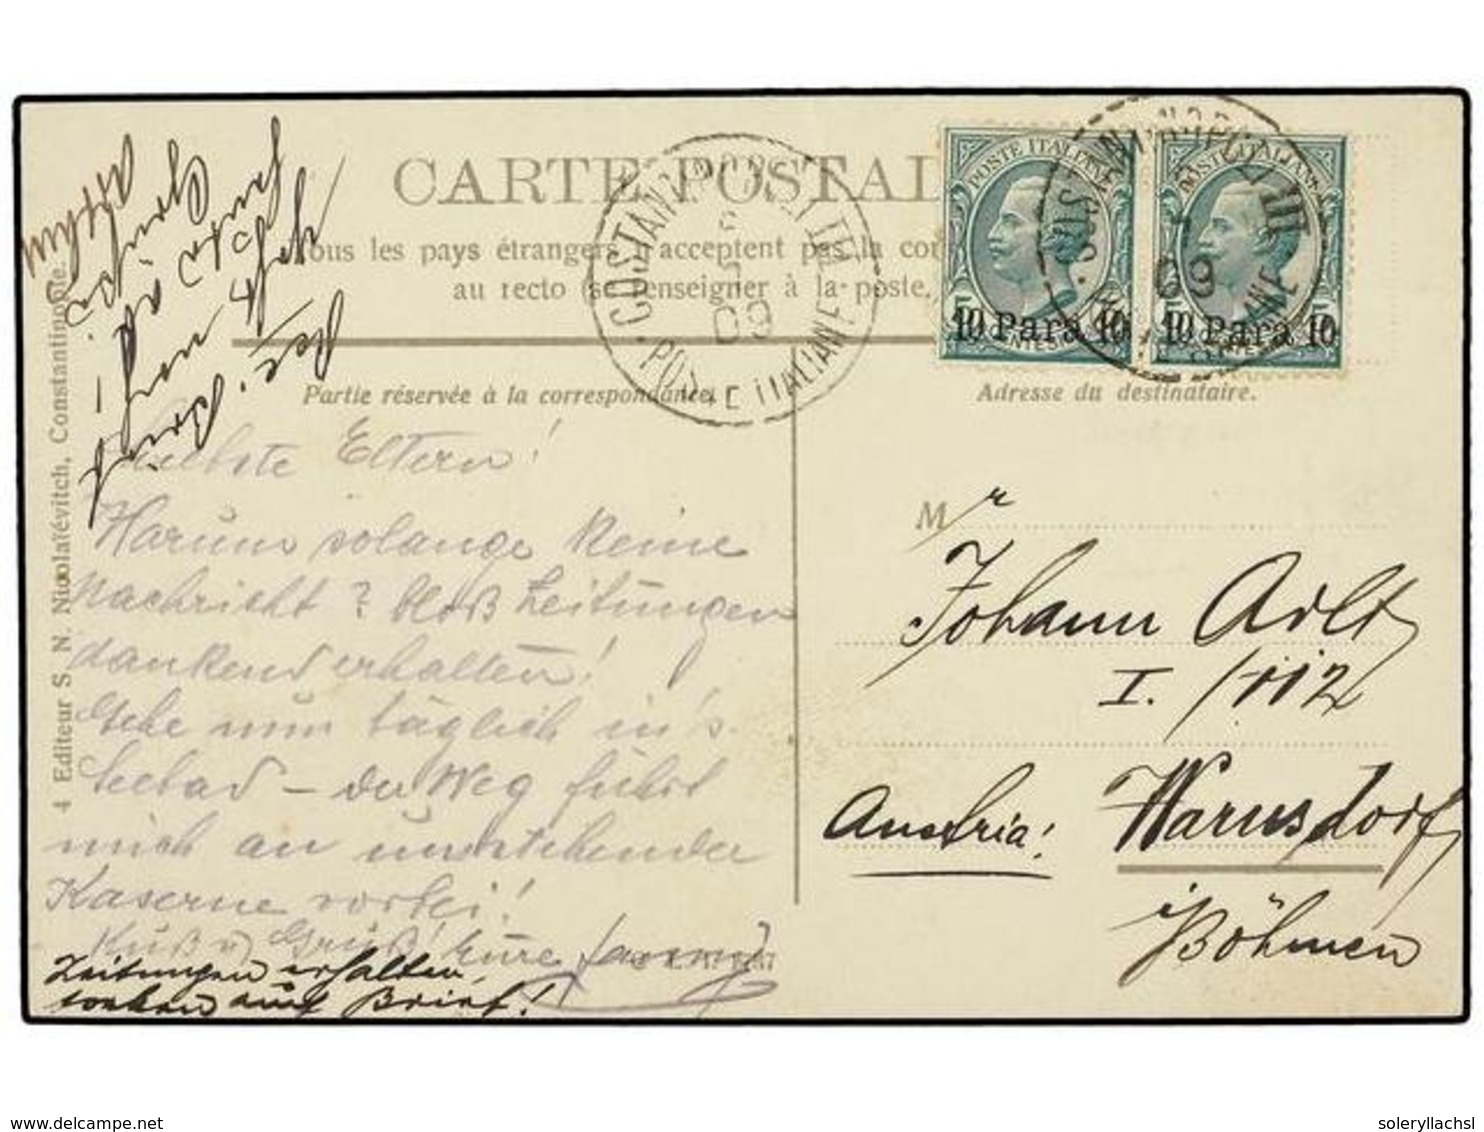 CARTE POSTALE
Tous les pays étrangers acceptent pas la
au recto (se renseigner à la poste,
Partie réservée à la correspondance.
Adresse du destinataire.
COSTANTINOPOLI III
09
POSTE ITALIANE
POSTE ITALIANE
10 Para 10
POSTE ITALIANE
10 Para 10
COSTANTINOPOLI III
09
POSTE ITALIANE
4 Editeur S. N. Nicolaïévitch, Constantinople.
Liebste Eltern!
Warum solange keine
Nachricht? bloß Zeitungen
dankend erhalten!
Gehe nun täglich in's
Seebad – der Weg führt
mich an umstehender
Kaserne vorbei!
Kuß u. Gruß! Eure
Zeitungen erhalten
auf Brief!
Mr
Johann Adlt
I. /112
Austria!
Warnsdorf
i/Böhmen
delcampe.net
soleryllachsl